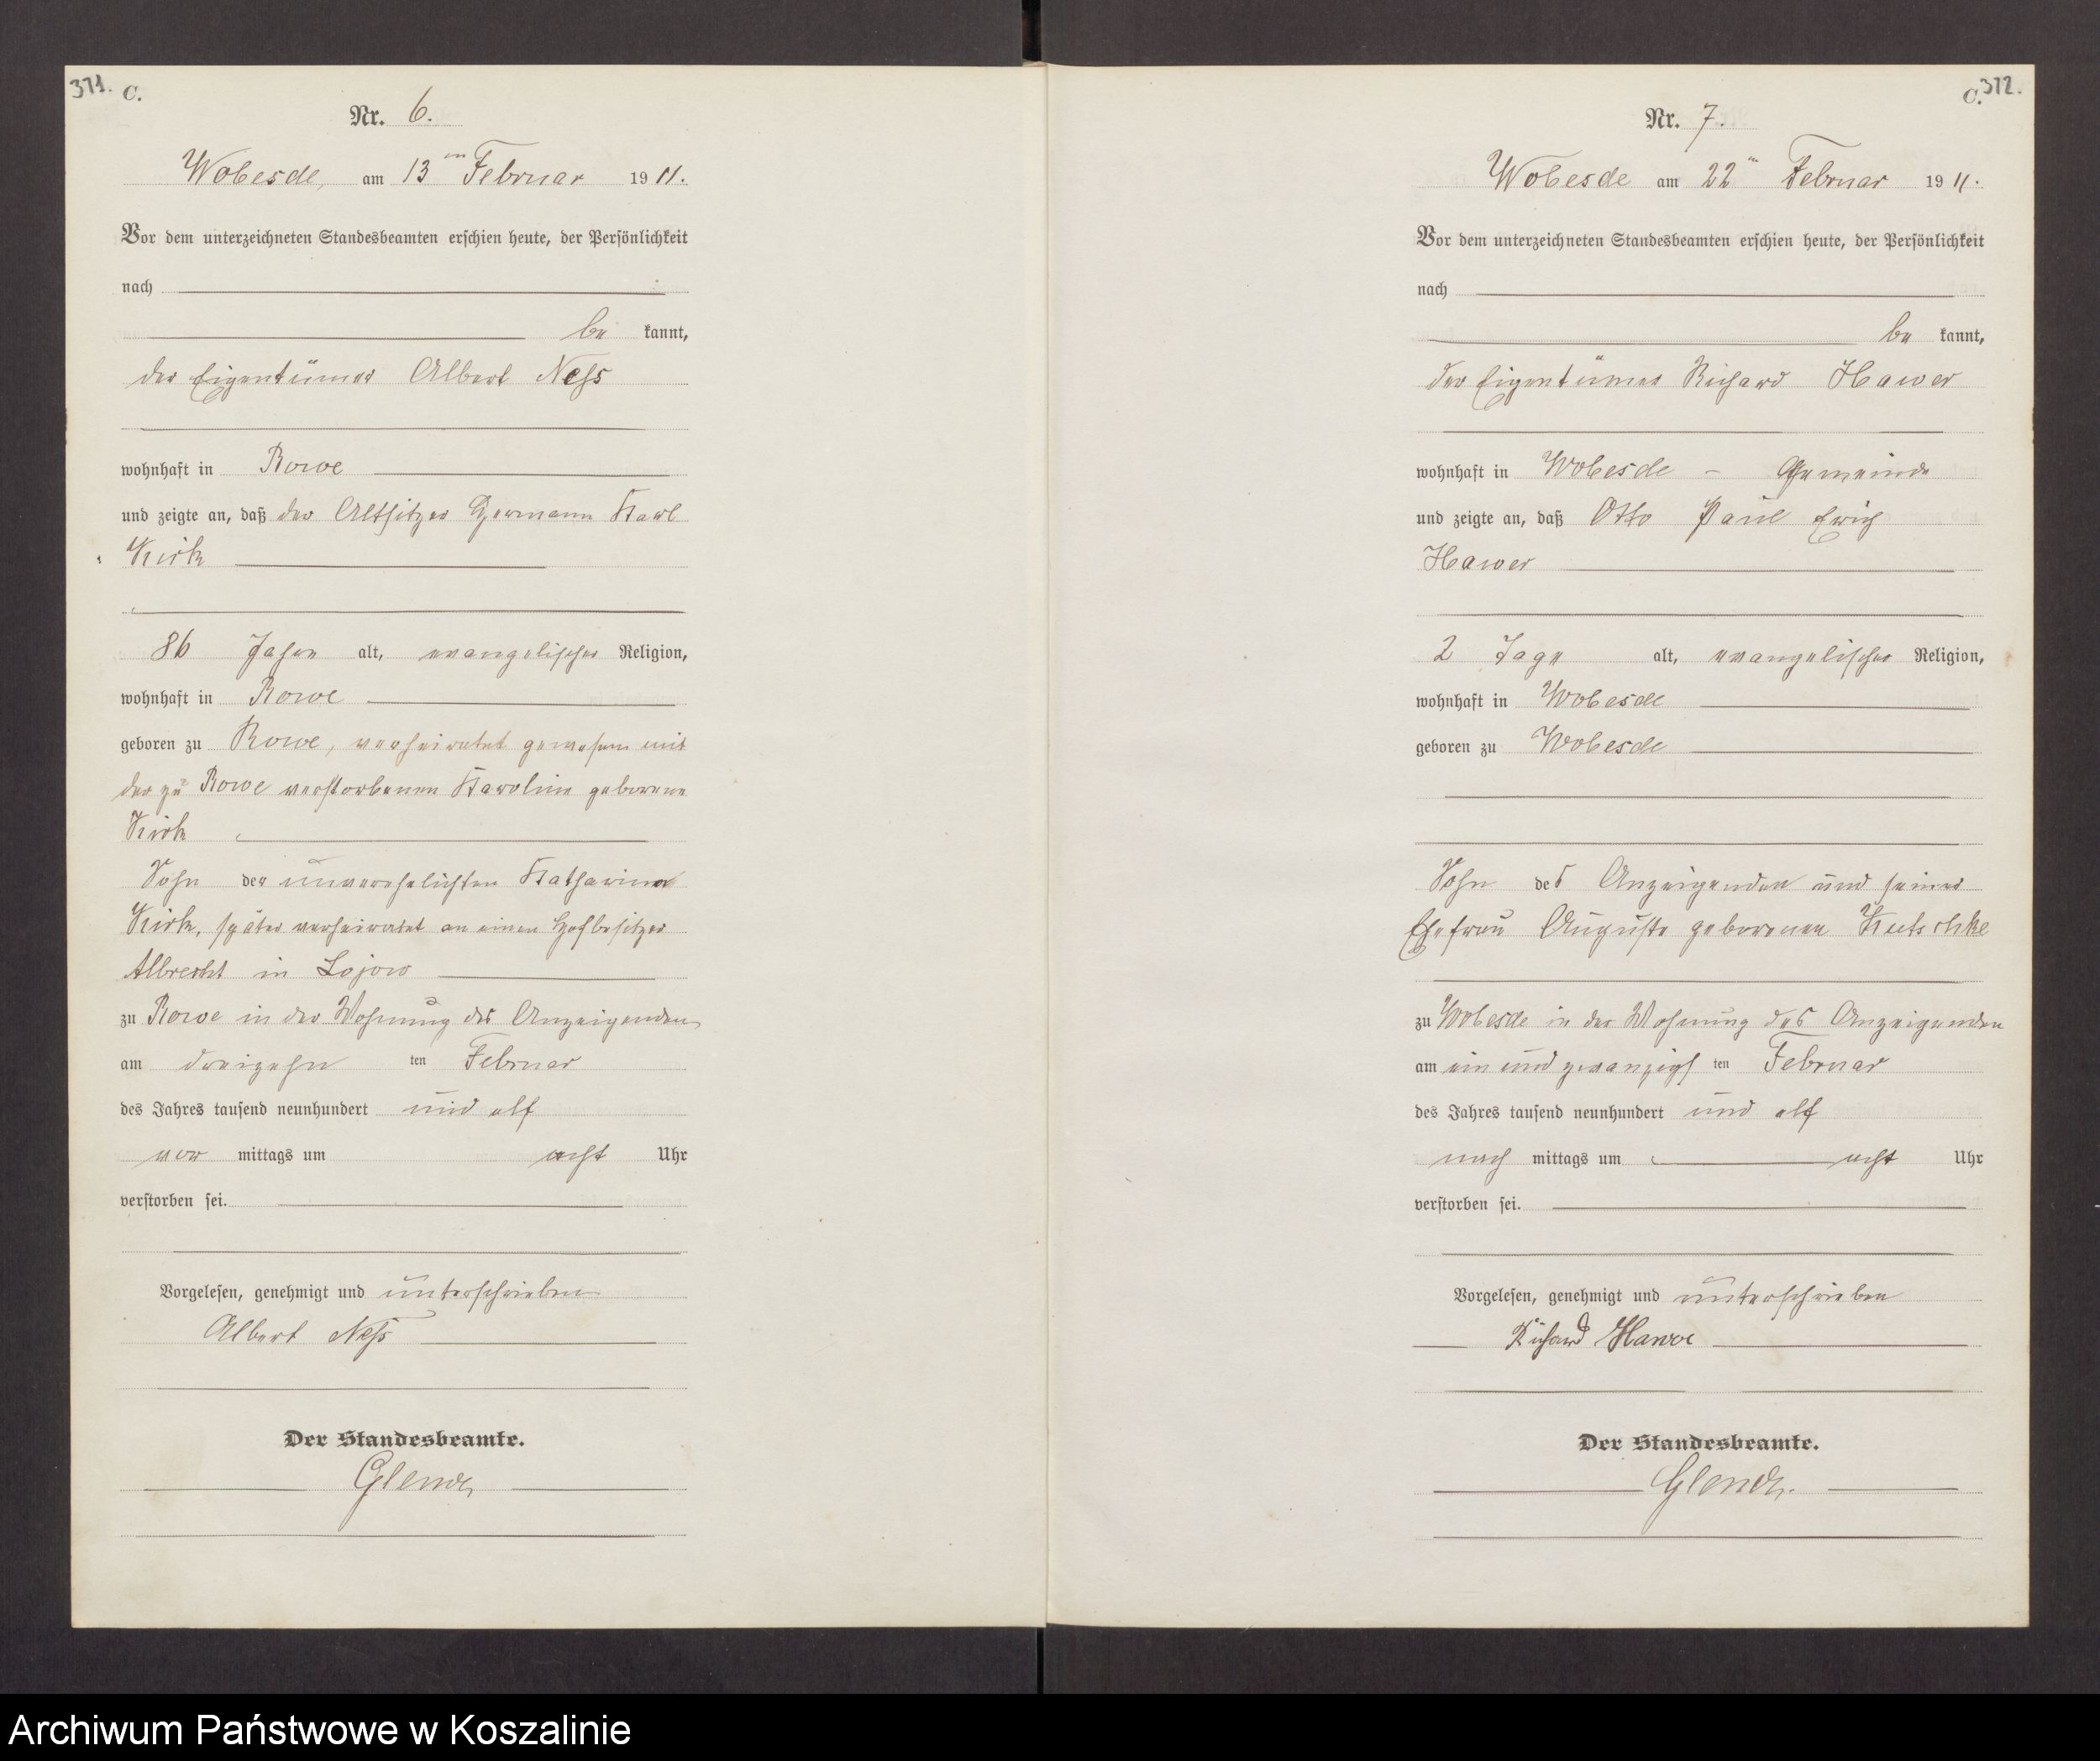 371. C.
Nr. 6.
Wobesde, am 13ten Februar 1911.
Vor dem unterzeichneten Standesbeamten erschien heute, der Persönlichkeit
nach
be kannt,
der Eigentümer Albert Ness
wohnhaft in Rowe
und zeigte an, daß der Altsitzer Hermann Karl
Kirk
86 Jahre alt, evangelischer Religion,
wohnhaft in Rowe
geboren zu Rowe, verheiratet gewesen mit
der zu Rowe verstorbenen Karoline geborene
Kirk
Sohn der unverehelichten Katharina
Kirk, später verheiratet an einen Hofbesitzer
Albrecht in Lojow
zu Rowe in der Wohnung des Anzeigenden
am dreizehn ten Februar
des Jahres tausend neunhundert und elf
vor mittags um acht Uhr
verstorben sei.
Vorgelesen, genehmigt und unterschrieben
Albert Ness
Der Standesbeamte.
C. 372.
Nr. 7.
Wobesde am 22ten Februar 1911.
Vor dem unterzeichneten Standesbeamten erschien heute, der Persönlichkeit
nach
be kannt,
der Eigentümer Richard Hawer
wohnhaft in Wobesde – Gemeinde
und zeigte an, daß Otto Paul Erich
Hawer
2 Tage alt, evangelischer Religion,
wohnhaft in Wobesde
geboren zu Wobesde
Sohn des Anzeigenden und seiner
Ehefrau Auguste geborenen Kutschke
zu Wobesde in der Wohnung des Anzeigenden
am ein und zwanzigs ten Februar
des Jahres tausend neunhundert und elf
nach mittags um acht Uhr
verstorben sei.
Vorgelesen, genehmigt und unterschrieben
Richard Hawer
Der Standesbeamte.
Archiwum Państwowe w Koszalinie